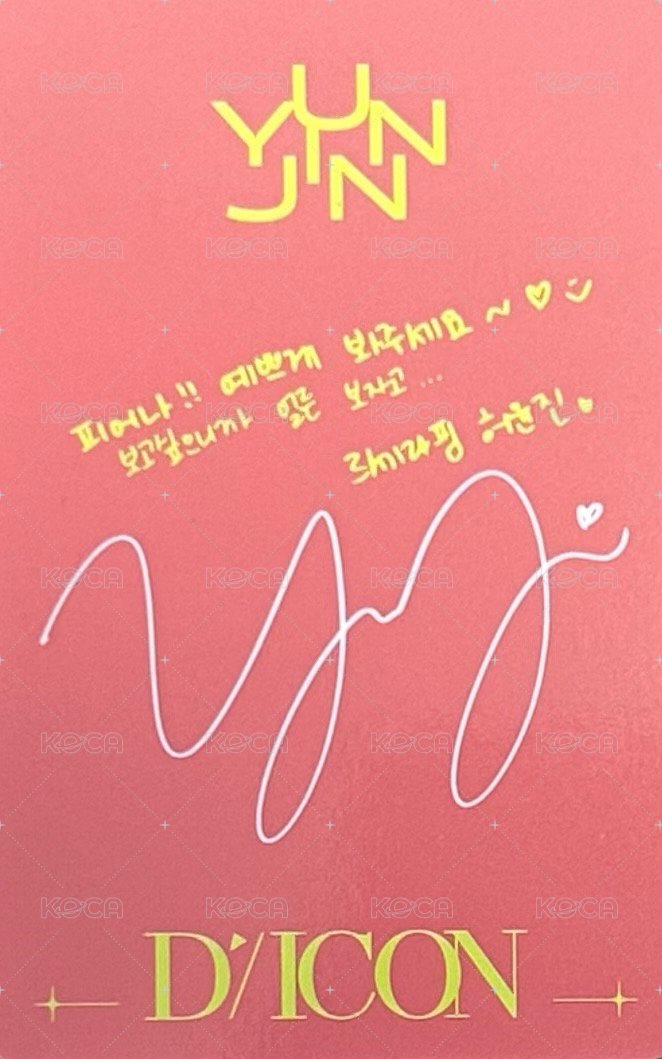 YUN
JIN
피어나!! 예쁘게 봐주세요~♡
보고싶으니까 얼른 보자고...
르세라핌 허윤진
D'/ICON
KOCA